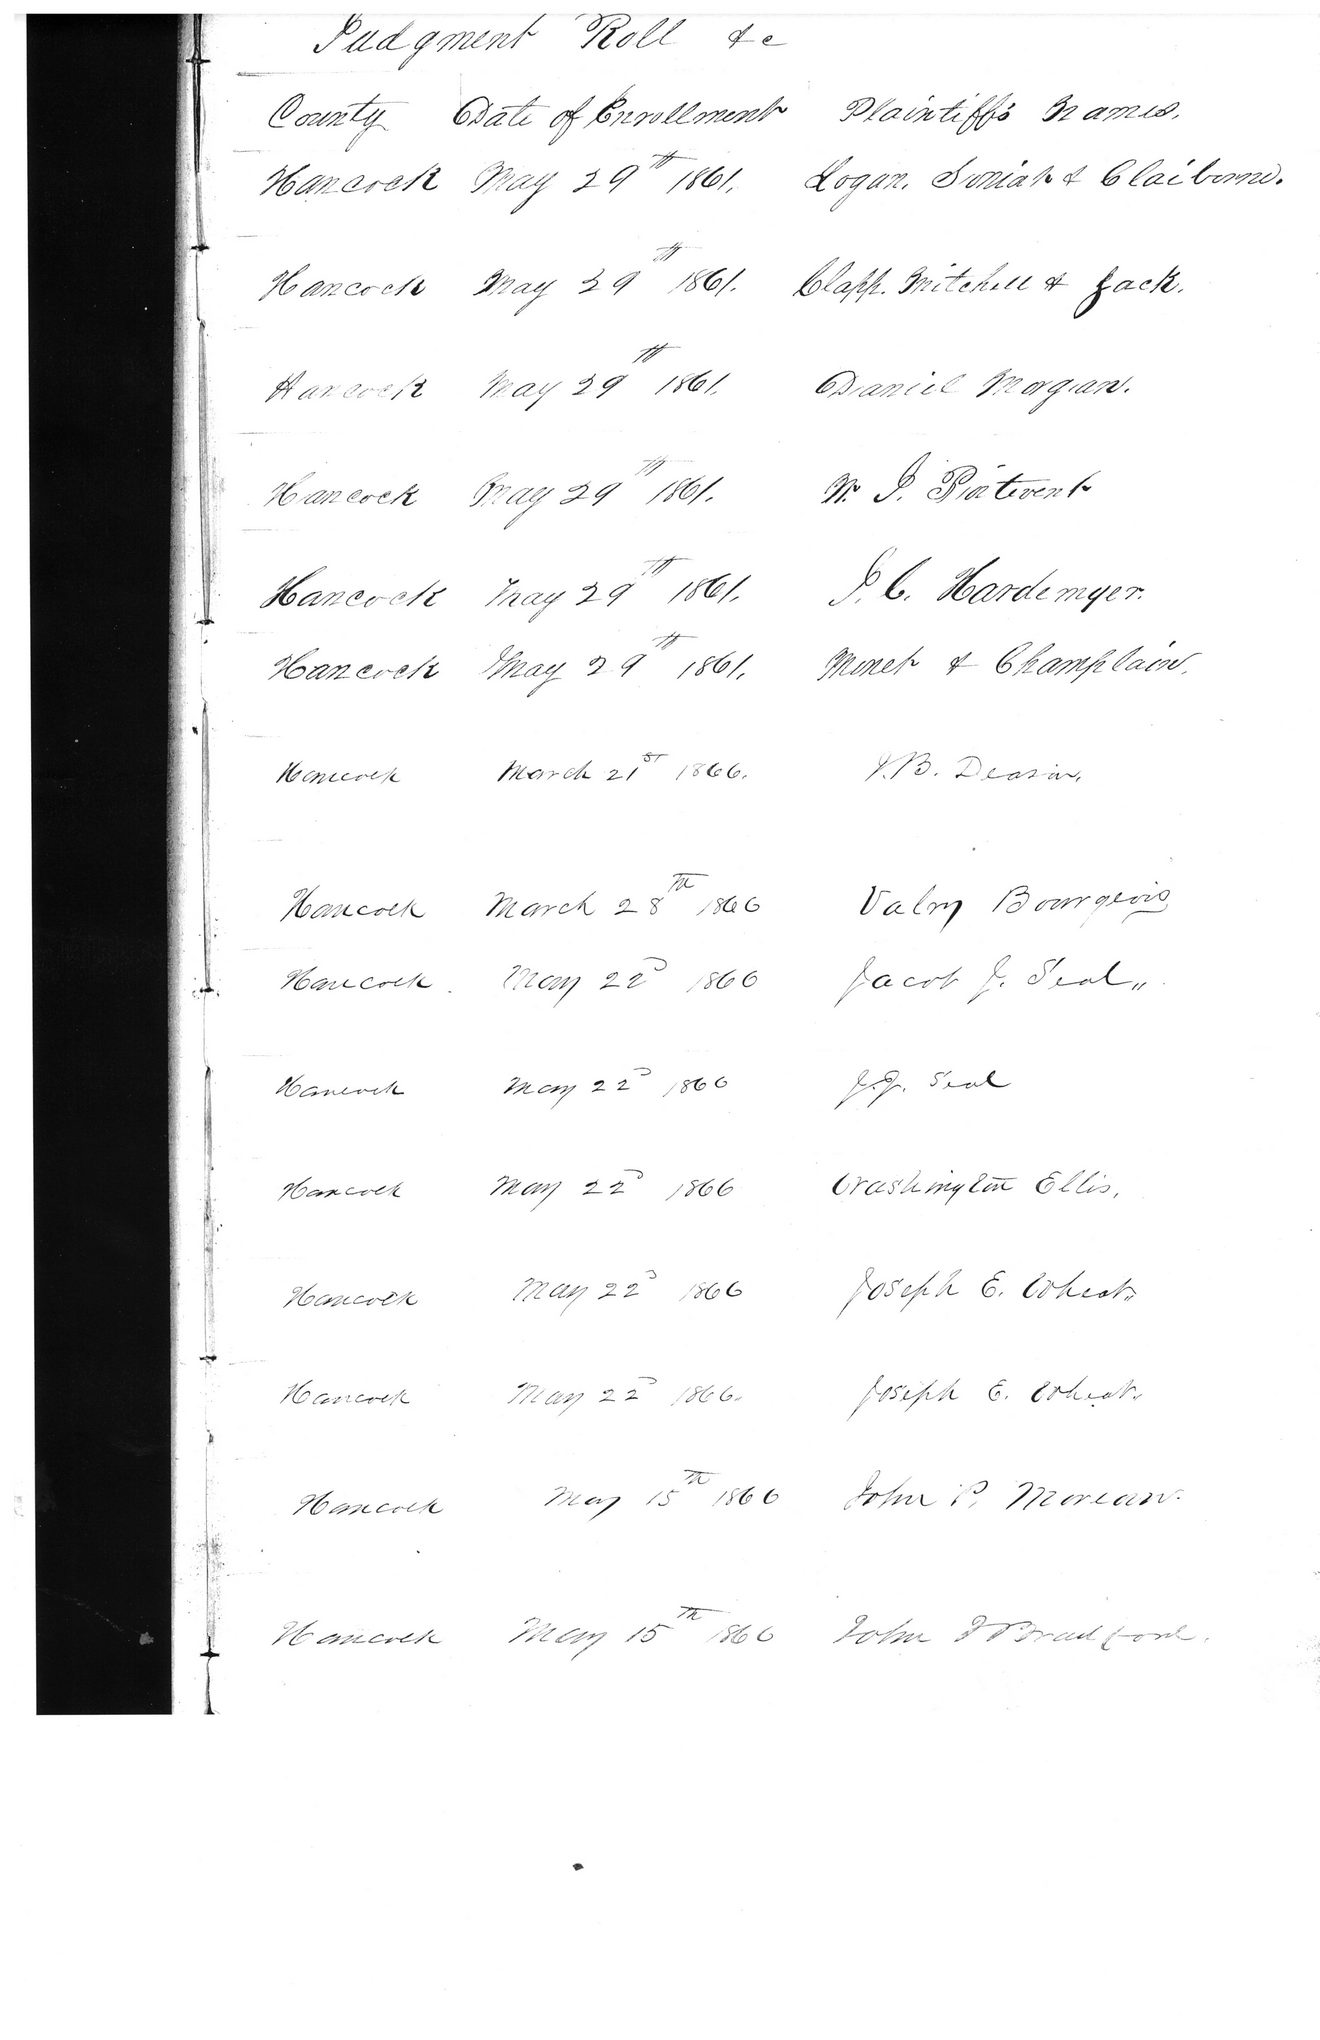 Judgment Roll &c
County Date of Enrollment Plaintiff's Names.
Hancock May 29th 1861. Logan, Soniat & Claiborne.
Hancock May 29th 1861. Clapp. Mitchell & Jack.
Hancock May 29th 1861. Daniel Morgan.
Hancock May 29th 1861. W. J. Poitevent
Hancock May 29th 1861. J. C. Hardemyer.
Hancock May 29th 1861. Monet & Champlain.
Hancock March 21st 1866. J. B. Deason.
Hancock March 28th 1866 Valry Bourgeois
Hancock May 22d 1866 Jacob J. Seal,,
Hancock May 22d 1866 J. J. Seal
Hancock May 22d 1866 Washington Ellis.
Hancock May 22d 1866 Joseph E. Wheat,,
Hancock May 22d 1866. Joseph E. Wheat.
Hancock May 15th 1866 John P. Moreau.
Hancock May 15th 1866 John J Bradford.